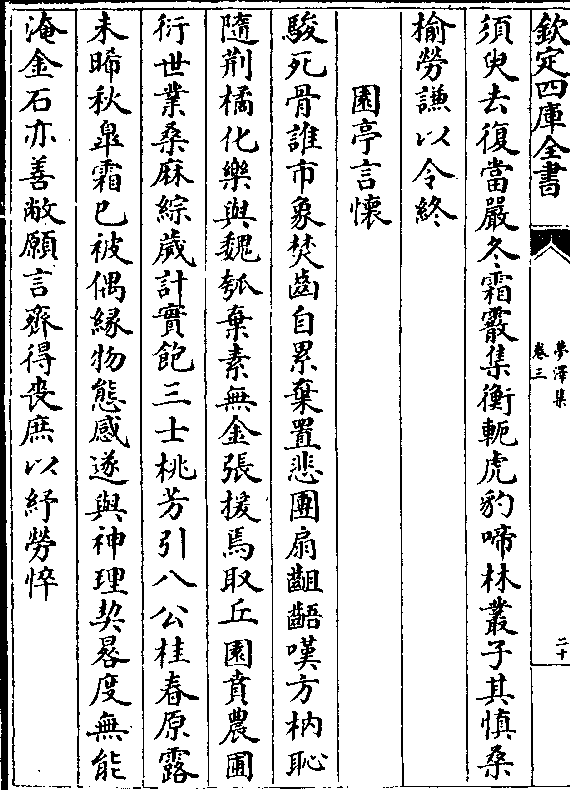 欽定四庫全書
夢澤集
卷三
二十
須臾去復當嚴冬霜霰集衡軛虎豹啼林叢子其慎桑
榆勞謙以令終
園亭言懷
駿死骨誰市象焚齒自累棄置悲團扇齟齬嘆方枘恥
隨荆橘化樂與魏瓠棄素無金張援焉取丘園賁農圃
衍世業桑麻綜歲計實飽三士桃芳引八公桂春原露
未晞秋臯霜已被偶緣物態感遂與神理契晷度無能
淹金石亦善敝願言齊得喪庶以紓勞悴